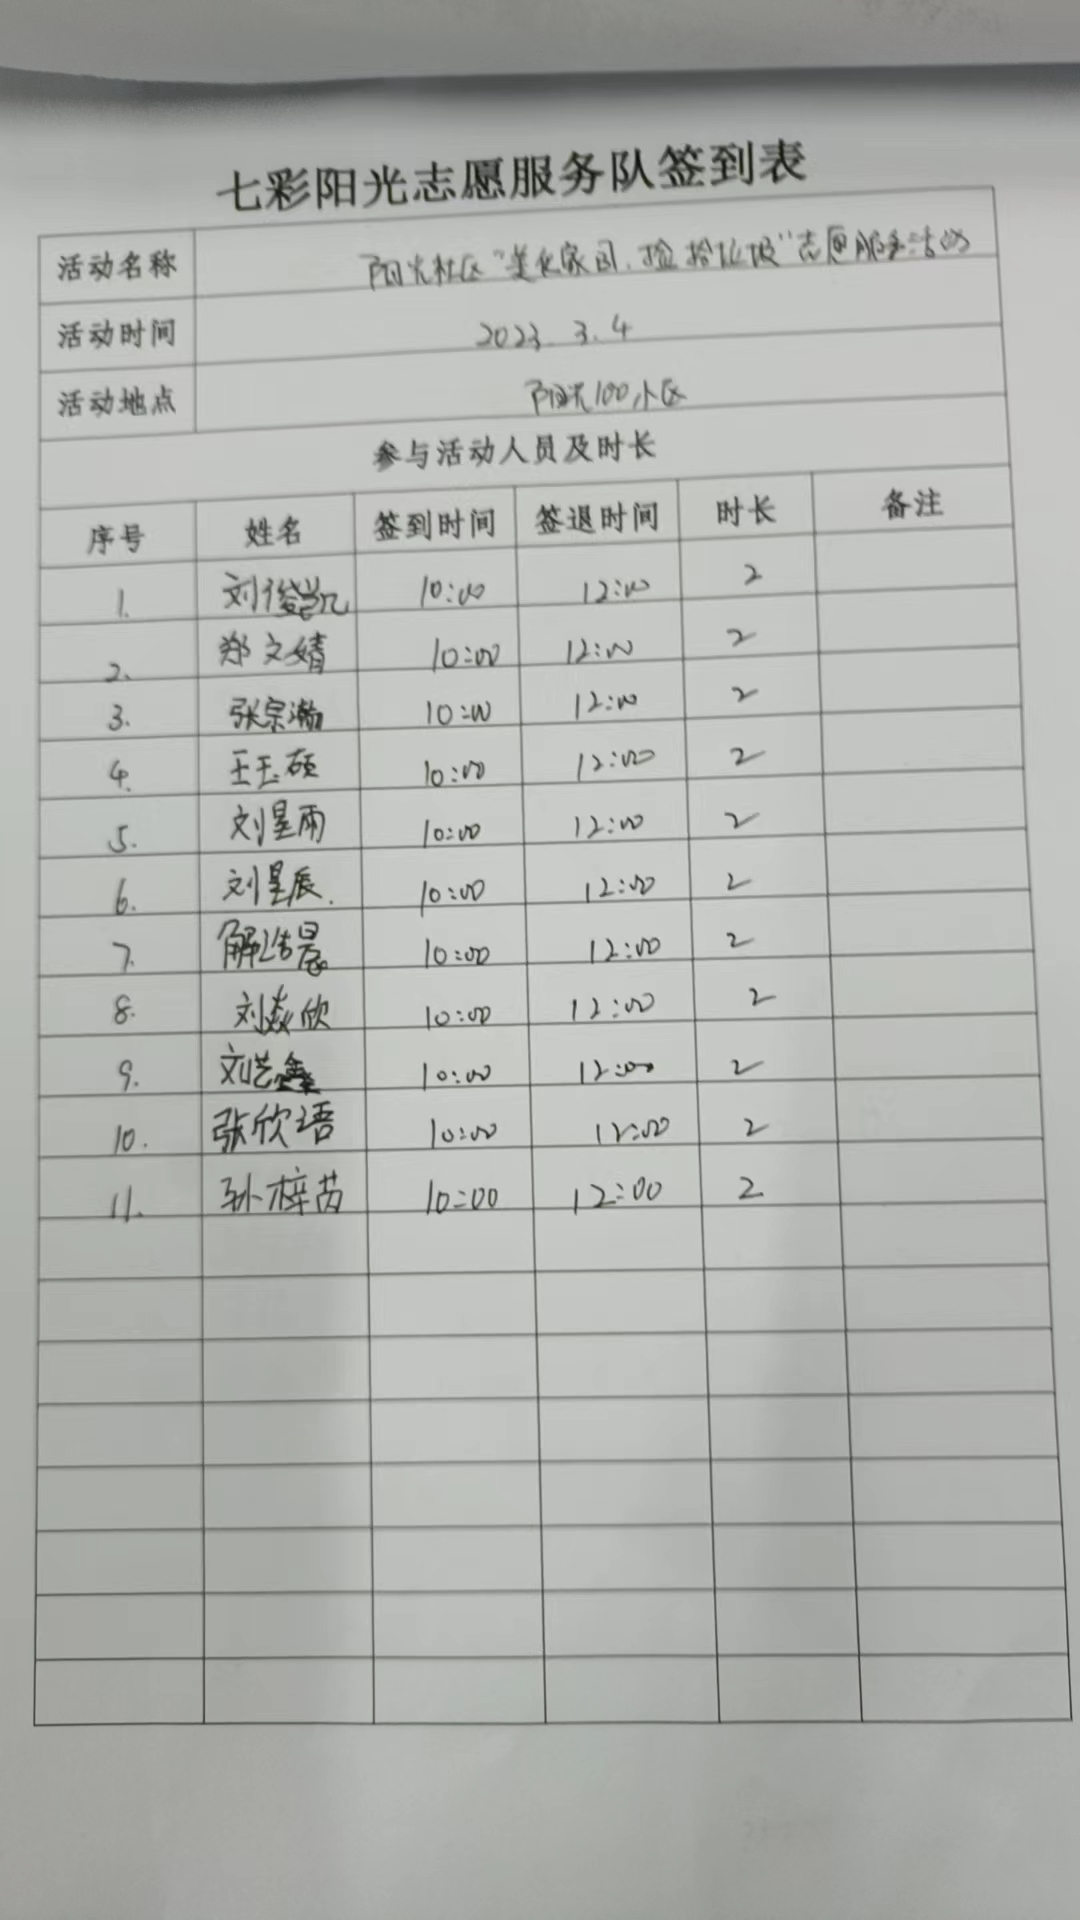 七彩阳光志愿服务队签到表
活动名称 阳光社区"美化家园、捡拾垃圾"志愿服务活动
活动时间 2023.3.4
活动地点 阳光100小区
参与活动人员及时长
序号 姓名 签到时间 签退时间 时长 备注
1. 刘俊凯 10:00 12:00 2
2. 郑文婧 10:00 12:00 2
3. 张宗瀚 10:00 12:00 2
4. 王玉硕 10:00 12:00 2
5. 刘星雨 10:00 12:00 2
6. 刘星辰. 10:00 12:00 2
7. 10:00 12:00 2
8. 刘焱欣 10:00 12:00 2
9. 刘艺鑫 10:00 12:00 2
10. 张欣语 10:00 12:00 2
11. 孙梓芮 10:00 12:00 2